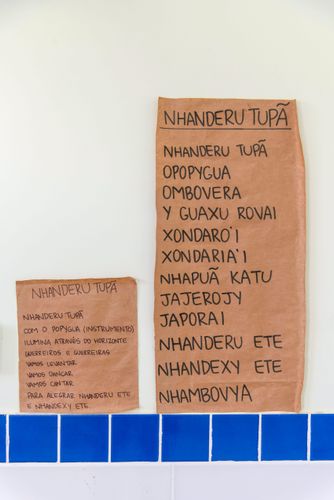 NHANDERU TUPÃ
NHANDERU TUPÃ
COM O POPYGUA (INSTRUMENTO)
ILUMINA ATRAVÉS DO HORIZONTE
GUERREIROS E GUERREIRAS
VAMOS LEVANTAR
VAMOS DANÇAR
VAMOS CANTAR
PARA ALEGRAR NHANDERU ETE
E NHANDEXY ETE.
NHANDERU TUPÃ
NHANDERU TUPÃ
OPOPYGUA
OMBOVERA
Y GUAXU ROVAI
XONDARO'I
XONDARIA'I
NHAPUÃ KATU
JAJEROJY
JAPORAI
NHANDERU ETE
NHANDEXY ETE
NHAMBOVYA